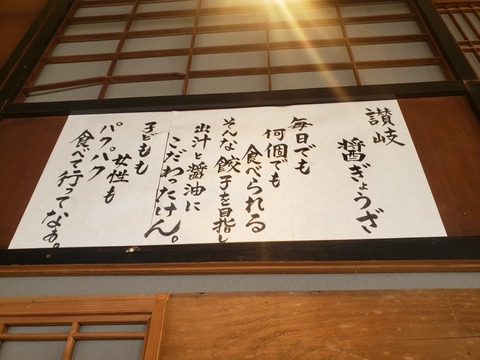 讃岐
醤ぎょうざ
毎日でも
何個でも
食べられる
そんな餃子を目指し
出汁と醤油に
こだわったけん。
子どもも
女性も
パクパク
食べて行ってなぁ。